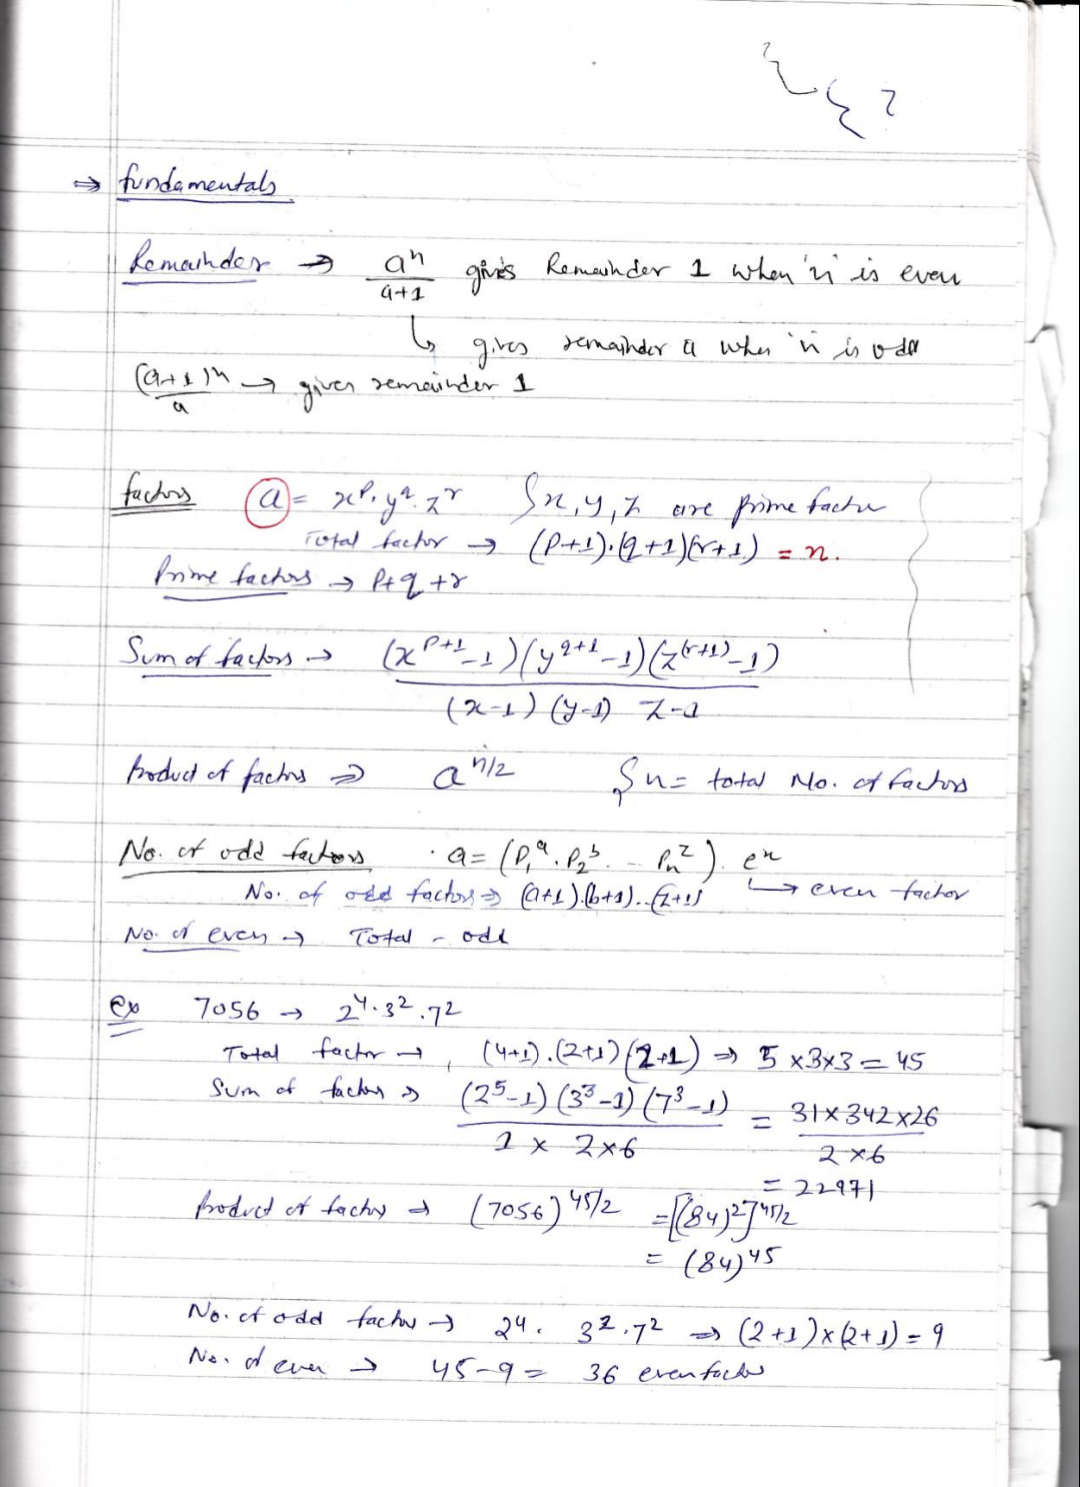 ⇒ fundamentals
Remainder → a^n / a+1 gives Remainder 1 when 'n' is even
↳ gives remainder a when 'n' is odd
(a+1)^n / a → gives remainder 1
factors a = x^p. y^q. z^r { x, y, z are prime factor
Total factor → (P+1).(q+1)(r+1) = n.
Prime factors → P+q+r
Sum of factors → (x^(P+1)-1)(y^(q+1)-1)(z^(r+1)-1)
(x-1) (y-1) z-1
Product of factors ⇒ a^n/2 { n = total No. of factors
No. of odd factors a = (P₁^a. P₂^b. - - Pn^z). e^x
↳ even factor
No. of odd factors ⇒ (a+1).(b+1)..(z+1)
No. of even → Total - odd
Ex 7056 → 2^4.3^2.7^2
Total factor → (4+1).(2+1)(2+1) ⇒ 5 x3x3 = 45
Sum of factors ⇒ (2^5-1)(3^3-1)(7^3-1) / 1 x 2x6 = 31x342x26 / 2x6
= 22971
Product of factors → (7056)^45/2 = [(84)^2]^45/2
= (84)^45
No. of odd factor → 2^4. 3^2.7^2 ⇒ (2+1)x(2+1) = 9
No. of even → 45-9 = 36 even factor